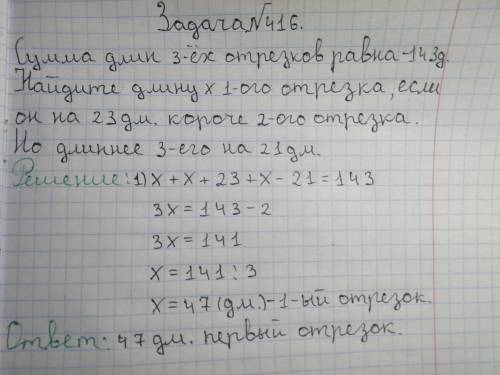 Задача №416.
Сумма длин 3-ёх отрезков равна-143д.
Найдите длину x 1-ого отрезка, если
он на 23дм. короче 2-ого отрезка.
Но длиннее 3-его на 21дм.
Решение: 1) x + x + 23 + x - 21 = 143
3x = 143 - 2
3x = 141
x = 141 : 3
x = 47 (дм.) - 1-ый отрезок.
Ответ: 47 дм. первый отрезок.